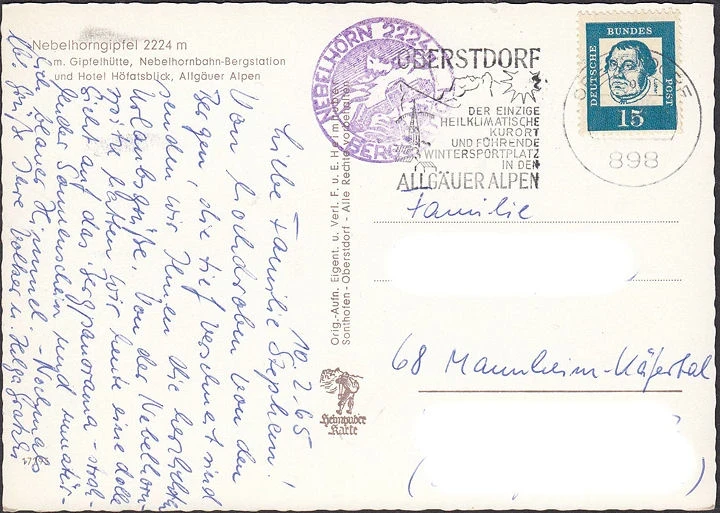 Nebelhorngipfel 2224 m
m. Gipfelhütte, Nebelhornbahn-Bergstation
und Hotel Höfatsblick, Allgäuer Alpen
10. 2. 65
Liebe Familie Stephein!
Von hochdroben von den
Bergen, die tief verschneit sind
senden wir Ihnen die herzlichsten
Urlaubsgrüße. Von der Nebelhorn-
spitze hatten wir heute eine dolle
Sicht auf das Bergpanorama - strah-
lender Sonnenschein und
blauer Himmel. - Nochmals
liebe Grüße Ihre Volker u. Helga
Orig.-Aufn. Eigent. u. Verl. F. u. E. Heimhuber
Sonthofen - Oberstdorf - Alle Rechte vorbehalten
Heimhuber
Karte
NEBELHORN 2224
BERG
OBERSTDORF
DER EINZIGE
HEILKLIMATISCHE
KURORT
UND FÜHRENDE
WINTERSPORTPLATZ
IN DEN
ALLGÄUER ALPEN
898
DEUTSCHE
BUNDES
POST
15
Familie
68 Mannheim-Käfertal
(